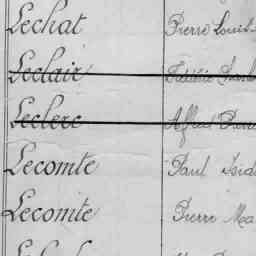 Lechat Pierre Louis
Leclair Frédéric
Leclerc Alfred Pierre
Lecomte Paul Isid
Lecomte Pierre Ma